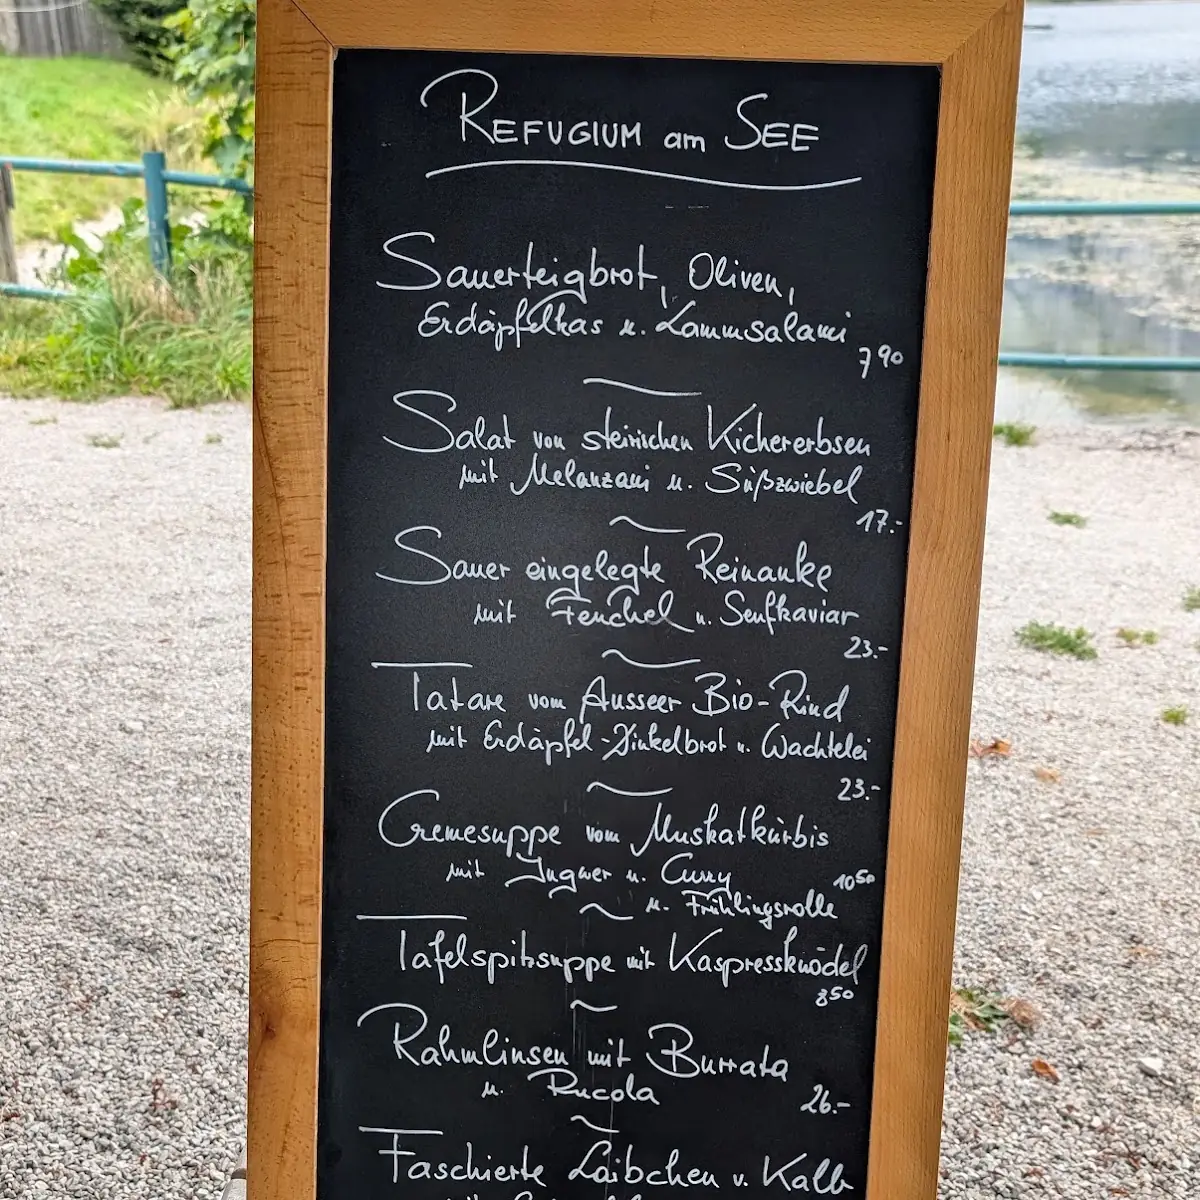 REFUGIUM am SEE
Sauerteigbrot, Oliven,
Erdäpfelkas u. Lammsalami
7 90
Salat von steirischen Kichererbsen
mit Melanzani u. Süßzwiebel
17.-
Sauer eingelegte Reinanke
mit Fenchel u. Senfkaviar
23.-
Tatare vom Ausseer Bio-Rind
mit Erdäpfel-Dinkelbrot u. Wachtelei
23.-
Cremesuppe vom Muskatkürbis
mit Ingwer u. Curry 10 50
u. Frühlingsrolle
Tafelspitzsuppe mit Kaspressknödel
8 50
Rahmlinsen mit Burrata
u. Rucola 26.-
Faschierte Laibchen v. Kalb